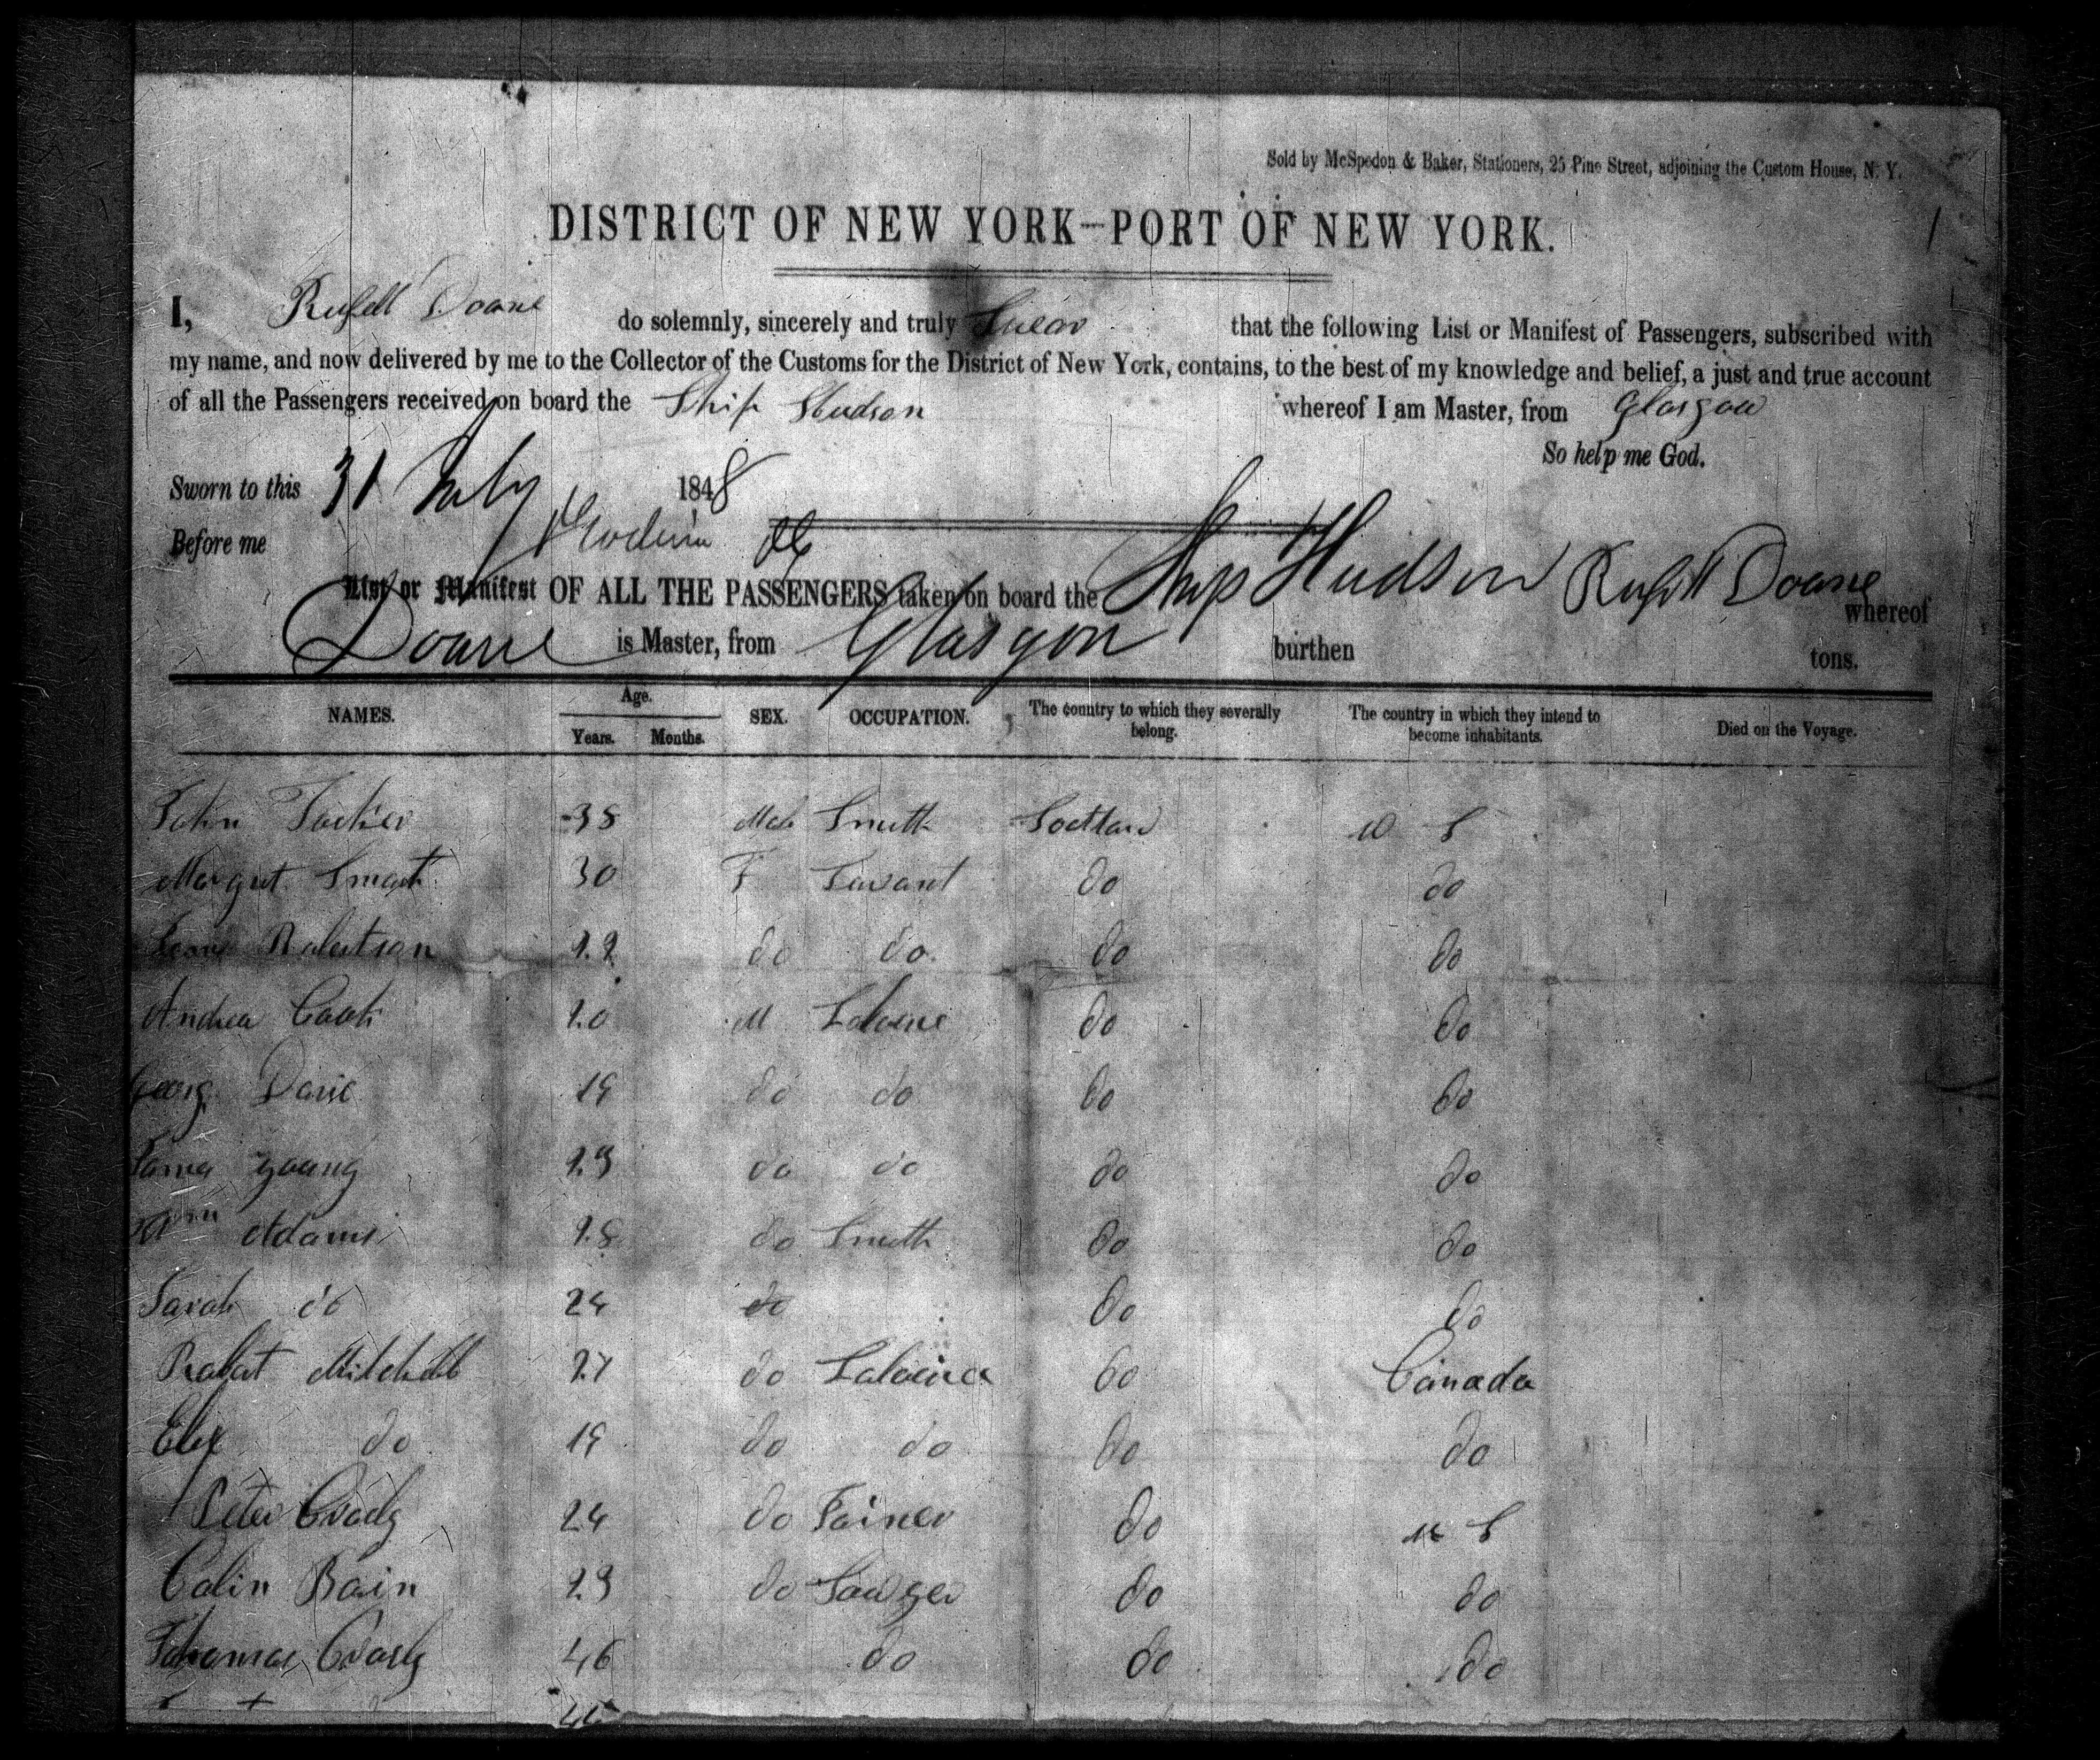 Sold by McSpedon & Baker, Stationers, 25 Pine Street, adjoining the Custom House, N. Y.
1
DISTRICT OF NEW YORK—PORT OF NEW YORK.
I, Russell Doane do solemnly, sincerely and truly Swear that the following List or Manifest of Passengers, subscribed with
my name, and now delivered by me to the Collector of the Customs for the District of New York, contains, to the best of my knowledge and belief, a just and true account
of all the Passengers received on board the Ship Hudson whereof I am Master, from Glasgow
So help me God.
Sworn to this 31 July 1848
Before me
List or Manifest OF ALL THE PASSENGERS taken on board the Ship Hudson Russell Doane whereof
Doane is Master, from Glasgow burthen tons.
NAMES. Age. Years. Months. SEX. OCCUPATION. The country to which they severally belong. The country in which they intend to become inhabitants. Died on the Voyage.
John 38 Smith U S
30 F do do
Robertson do do do do
20 M do do
Georg 19 do do do do
Young 23 do do do do
Wm Adams 28 do Smith do do
Sarah do 24 do do do
Mitchell 27 do do Canada
do 19 do do do do
Peter 24 do do U S
Colin Bain 23 do do do
Thomas 46 do do do